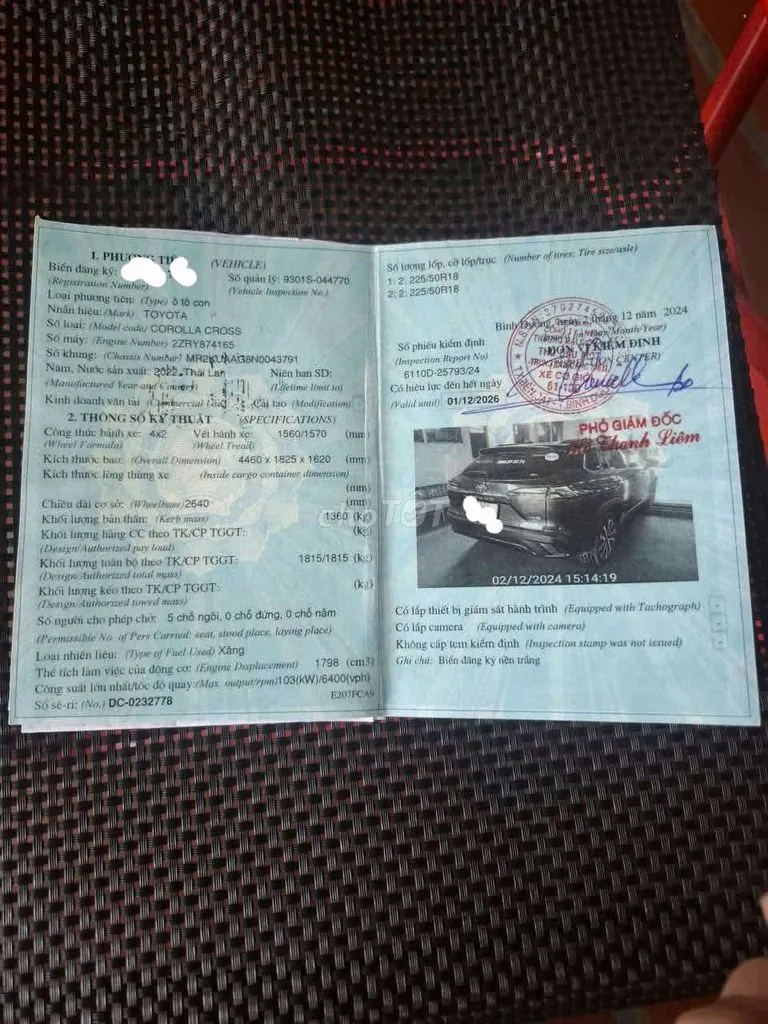 1. PHƯƠNG TIỆ (VEHICLE)
Biển đăng ký:
(Registration Number)
Số quản lý: 9301S-044770
(Vehicle Inspection No.)
Loại phương tiện: (Type) ô tô con
Nhãn hiệu: (Mark) TOYOTA
Số loại: (Model code) COROLLA CROSS
Số máy: (Engine Number) 2ZRY874165
Số khung: (Chassis Number)
Năm, Nước sản xuất: 2022, Thái Lan
Niên hạn SD:
(Manufactured Year and Country)
(Lifetime limit to)
Kinh doanh vận tải (Commercial Use)
Cải tạo (Modification)
2. THÔNG SỐ KỸ THUẬT (SPECIFICATIONS)
Công thức bánh xe: 4x2 Vết bánh xe: 1560/1570 (mm)
(Wheel Formula) (Wheel Tread)
Kích thước bao: (Overall Dimension) 4460 x 1825 x 1620 (mm)
Kích thước lòng thùng xe (Inside cargo container dimension)
(mm)
Chiều dài cơ sở: (Wheelbase) 2640 (mm)
Khối lượng bản thân: (Kerb mass) 1360 (kg)
Khối lượng hàng CC theo TK/CP TGGT: (kg)
(Design/Authorized pay load)
Khối lượng toàn bộ theo TK/CP TGGT: 1815/1815 (kg)
(Design/Authorized total mass)
Khối lượng kéo theo TK/CP TGGT: (kg)
(Design/Authorized towed mass)
Số người cho phép chở: 5 chỗ ngồi, 0 chỗ đứng, 0 chỗ nằm
(Permissible No. of Pers Carried: seat, stood place, laying place)
Loại nhiên liệu: (Type of Fuel Used) Xăng
Thể tích làm việc của động cơ: (Engine Displacement) 1798 (cm3)
Công suất lớn nhất/tốc độ quay: (Max. output/rpm) 103(kW)/6400(vph)
E207FCA9
Số sê-ri: (No.) DC-0232778
Số lượng lốp, cỡ lốp/trục (Number of tires; Tire size/axle)
1: 2; 225/50R18
2: 2; 225/50R18
Bình Dương, ngày 2 tháng 12 năm 2024
(Day/Month/Year)
Số phiếu kiểm định
ĐƠN VỊ KIỂM ĐỊNH
(Inspection Report No)
(INSPECTION CENTER)
6110D-25793/24
XE CƠ GIỚI
Có hiệu lực đến hết ngày
(Valid until) 01/12/2026
PHÓ GIÁM ĐỐC
Thanh Liêm
chợTỐT
02/12/2024 15:14:19
Có lắp thiết bị giám sát hành trình (Equipped with Tachograph)
Có lắp camera (Equipped with camera)
Không cấp tem kiểm định (Inspection stamp was not issued)
Ghi chú: Biển đăng ký nền trắng